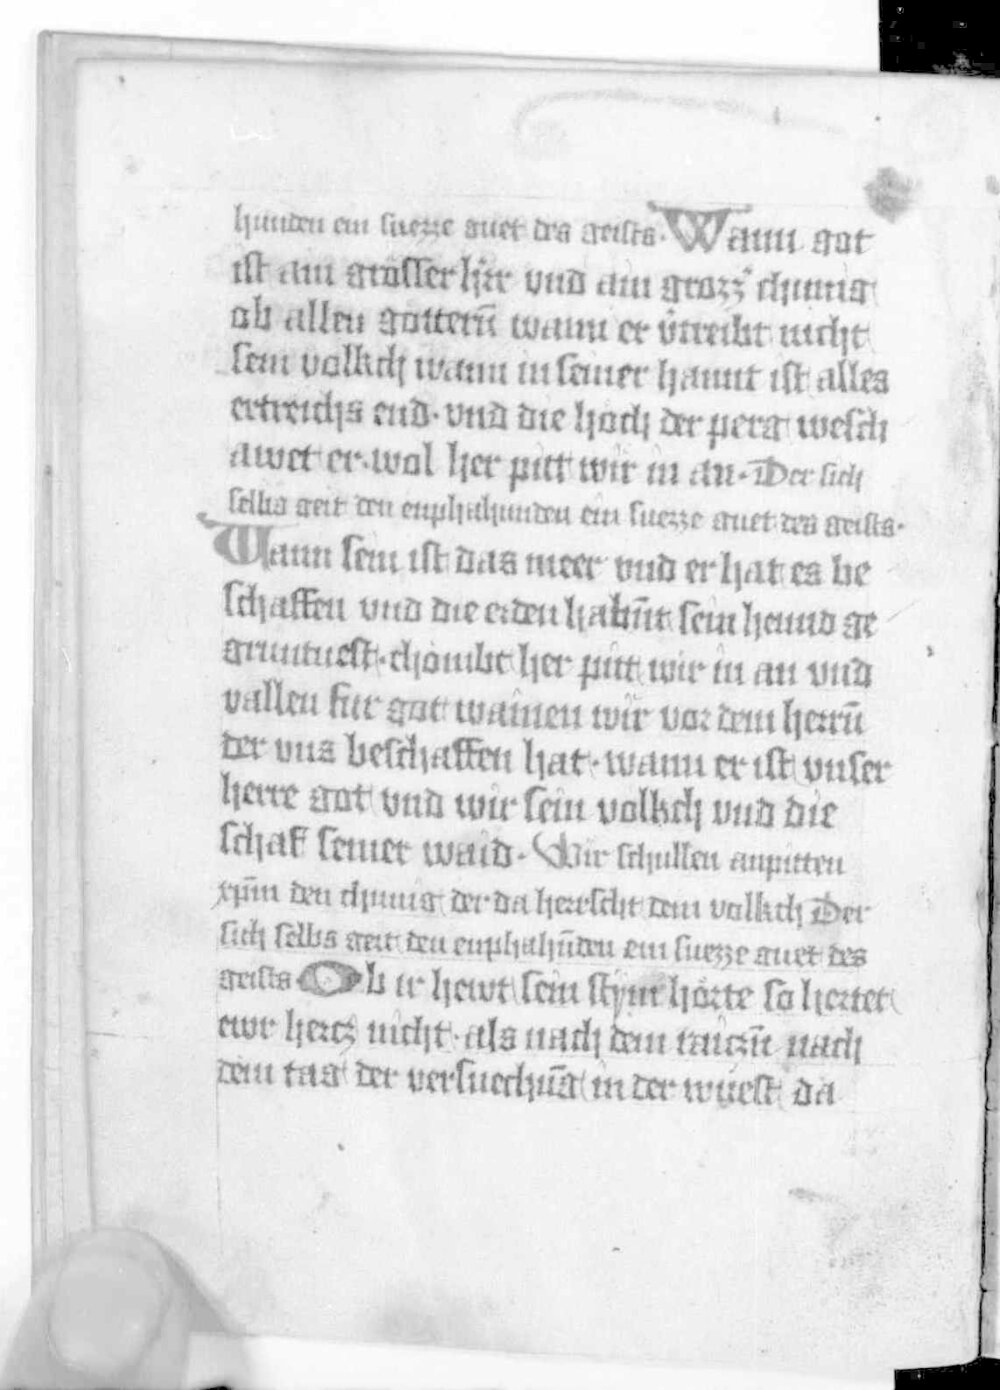 hunden ein suezze guet des geists. Wann got
ist ain grosser h̄r vnd ain grozz̉ chunig
ob allen gotterñ wann er v̉treibt nicht
sein volkch wann in seiner hannt ist alles
ertreichs end. vnd die hoch der perg wesch
awet er. wol her pitt wir in an. Der sich
selbs geit den enphahunden ein suezze guet des geists.
Wann sein ist das meer vnd er hat es be
schaffen vnd die erden habñt sein hennd ge
gruntuest. chombt her pitt wir in an vnd
vallen fur got wainen wir vor dem herrñ
der vns beschaffen hat. wann er ist vnser
herre got vnd wir sein volkch vnd die
schaf seiner waid. Wir schullen anpitten
xp̄m den chunig der da herrscht dem volkch Der
sich selbs geit den enphahñden ein suezze guet des
geists Ob ir hewt sein stym horte so hertet
ewr hercz nicht. als nach dem raiczñ nach
dem tag der versuechūg in der wuest da